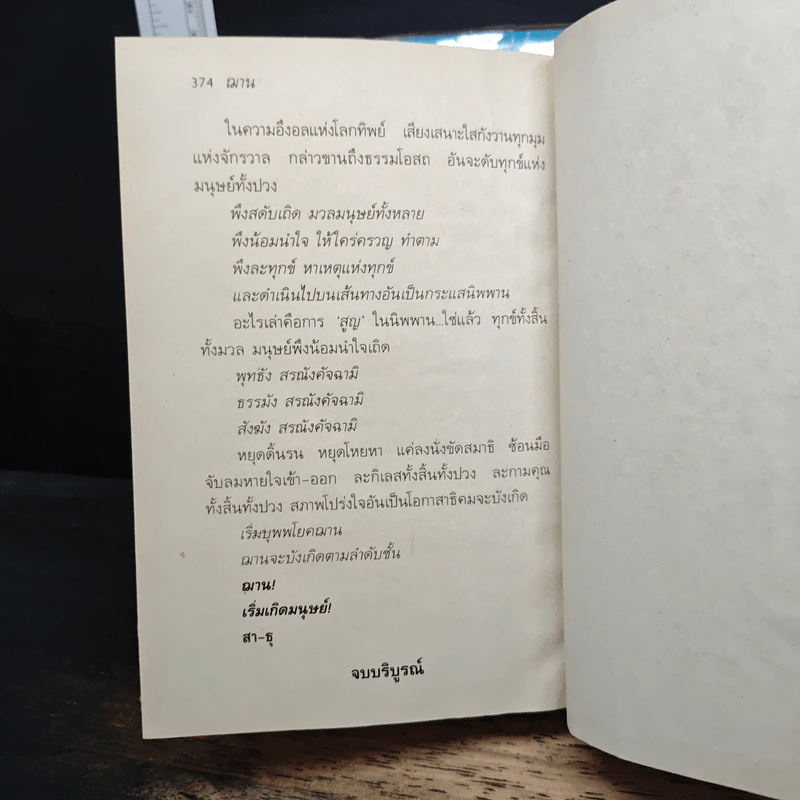 374 ฌาน
ในความอึงอลแห่งโลกทิพย์ เสียงเสนาะใสกังวานทุกมุม
แห่งจักรวาล กล่าวขานถึงธรรมโอสถ อันจะดับทุกข์แห่ง
มนุษย์ทั้งปวง
พึงสดับเถิด มวลมนุษย์ทั้งหลาย
พึงน้อมนำใจ ให้ใคร่ครวญ ทำตาม
พึงละทุกข์ หาเหตุแห่งทุกข์
และดำเนินไปบนเส้นทางอันเป็นกระแสนิพพาน
อะไรเล่าคือการ 'สูญ' ในนิพพาน...ใช่แล้ว ทุกข์ทั้งสิ้น
ทั้งมวล มนุษย์พึงน้อมนำใจเถิด
พุทธัง สรณังคัจฉามิ
ธรรมัง สรณังคัจฉามิ
สังฆัง สรณังคัจฉามิ
หยุดดิ้นรน หยุดโหยหา แค่ลงนั่งขัดสมาธิ ซ้อนมือ
จับลมหายใจเข้า-ออก ละกิเลสทั้งสิ้นทั้งปวง ละกามคุณ
ทั้งสิ้นทั้งปวง สภาพโปร่งใจอันเป็นโอกาสาธิคมจะบังเกิด
เริ่มบุพพโยคฌาน
ฌานจะบังเกิดตามลำดับชั้น
ฌาน!
เริ่มเกิดมนุษย์!
สา-ธุ
จบบริบูรณ์